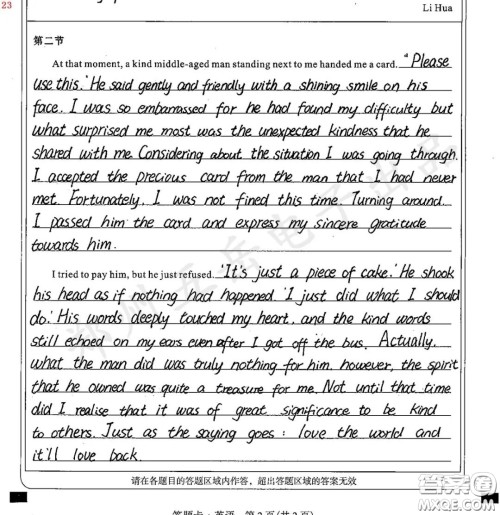 23
Li Hua
第二节
At that moment, a kind middle-aged man standing next to me handed me a card. "Please
use this.' He said gently and friendly with a shining smile on his
face. I was so embarrassed for he had found my difficulty but
what surprised me most was the unexpected kindness that he
shared with me. Considering about the situation I was going through.
I accepted the precious card from the man that I had never
met. Fortunately, I was not fined this time. Turning around.
I passed him the card and express my sincere gratitude
towards him.
I tried to pay him, but he just refused. 'It's just a piece of cake.' He shook
his head as if nothing had happened. 'I just did what I should
do.' His words deeply touched my heart, and the kind words
still echoed on my ears even after I got off the bus. Actually,
what the man did was truly nothing for him. however, the spirit
that he owned was quite a treasure for me. Not until that time
did I realise that it was of great significance to be kind
to others. Just as the saying goes: love the world and
it'll love back.
请在各题目的答题区域内作答，超出答题区域的答案无效
答题卡·英语 第2页(共2页)